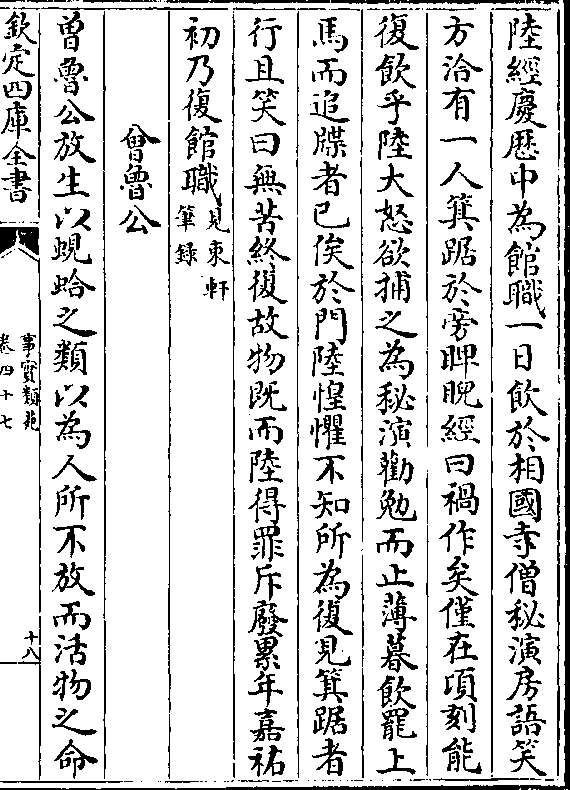 陸經慶歴中為館職一日飲於相國寺僧秘演房語笑
方洽有一人箕踞於旁睥睨經曰禍作矣僅在頃刻能
復飲乎陸大怒欲捕之為秘演勸勉而止薄暮飲罷上
馬而追牒者已俟於門陸惶懼不知所為復見箕踞者
行且笑曰無苦終復故物既而陸得罪斥廢累年嘉祐
初乃復館職見東軒
筆録
曾魯公
曽魯公放生以蜆蛤之類以為人所不放而活物之命
欽定四庫全書
事實類苑
卷四十七
十八